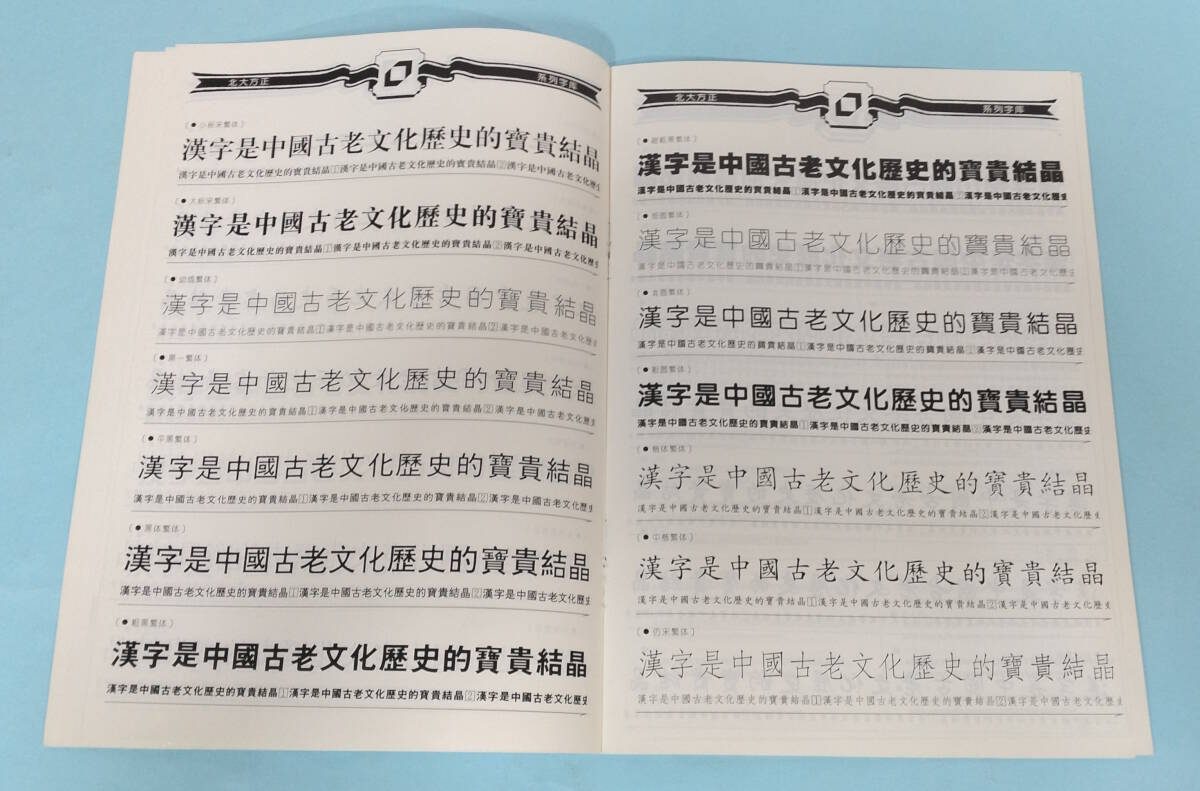 北大方正 系列字库
(●小标宋繁体)
漢字是中國古老文化歷史的寶貴結晶
漢字是中國古老文化歷史的寶貴結晶①漢字是中國古老文化歷史的寶貴結晶②漢字是中國古老文化歷
(●大标宋繁体)
漢字是中國古老文化歷史的寶貴結晶
漢字是中國古老文化歷史的寶貴結晶①漢字是中國古老文化歷史的寶貴結晶②漢字是中國古老文化歷
(●幼线繁体)
漢字是中國古老文化歷史的寶貴結晶
漢字是中國古老文化歷史的寶貴結晶①漢字是中國古老文化歷史的寶貴結晶②漢字是中國古老文化歷
(●黑一繁体)
漢字是中國古老文化歷史的寶貴結晶
漢字是中國古老文化歷史的寶貴結晶①漢字是中國古老文化歷史的寶貴結晶②漢字是中國古老文化歷
(●平黑繁体)
漢字是中國古老文化歷史的寶貴結晶
漢字是中國古老文化歷史的寶貴結晶①漢字是中國古老文化歷史的寶貴結晶②漢字是中國古老文化歷
(●黑体繁体)
漢字是中國古老文化歷史的寶貴結晶
漢字是中國古老文化歷史的寶貴結晶①漢字是中國古老文化歷史的寶貴結晶②漢字是中國古老文化歷
(●粗黑繁体)
漢字是中國古老文化歷史的寶貴結晶
漢字是中國古老文化歷史的寶貴結晶①漢字是中國古老文化歷史的寶貴結晶②漢字是中國古老文化歷
北大方正 系列字库
(●超粗黑繁体)
漢字是中國古老文化歷史的寶貴結晶
漢字是中國古老文化歷史的寶貴結晶①漢字是中國古老文化歷史的寶貴結晶②漢字是中國古老文化歷
(●细圆繁体)
漢字是中國古老文化歷史的寶貴結晶
漢字是中國古老文化歷史的寶貴結晶①漢字是中國古老文化歷史的寶貴結晶②漢字是中國古老文化歷
(●准圆繁体)
漢字是中國古老文化歷史的寶貴結晶
漢字是中國古老文化歷史的寶貴結晶①漢字是中國古老文化歷史的寶貴結晶②漢字是中國古老文化歷
(●粗圆繁体)
漢字是中國古老文化歷史的寶貴結晶
漢字是中國古老文化歷史的寶貴結晶①漢字是中國古老文化歷史的寶貴結晶②漢字是中國古老文化歷
(●楷体繁体)
漢字是中國古老文化歷史的寶貴結晶
漢字是中國古老文化歷史的寶貴結晶①漢字是中國古老文化歷史的寶貴結晶②漢字是中國古老文化歷
(●中楷繁体)
漢字是中國古老文化歷史的寶貴結晶
漢字是中國古老文化歷史的寶貴結晶①漢字是中國古老文化歷史的寶貴結晶②漢字是中國古老文化歷
(●仿宋繁体)
漢字是中國古老文化歷史的寶貴結晶
漢字是中國古老文化歷史的寶貴結晶①漢字是中國古老文化歷史的寶貴結晶②漢字是中國古老文化歷